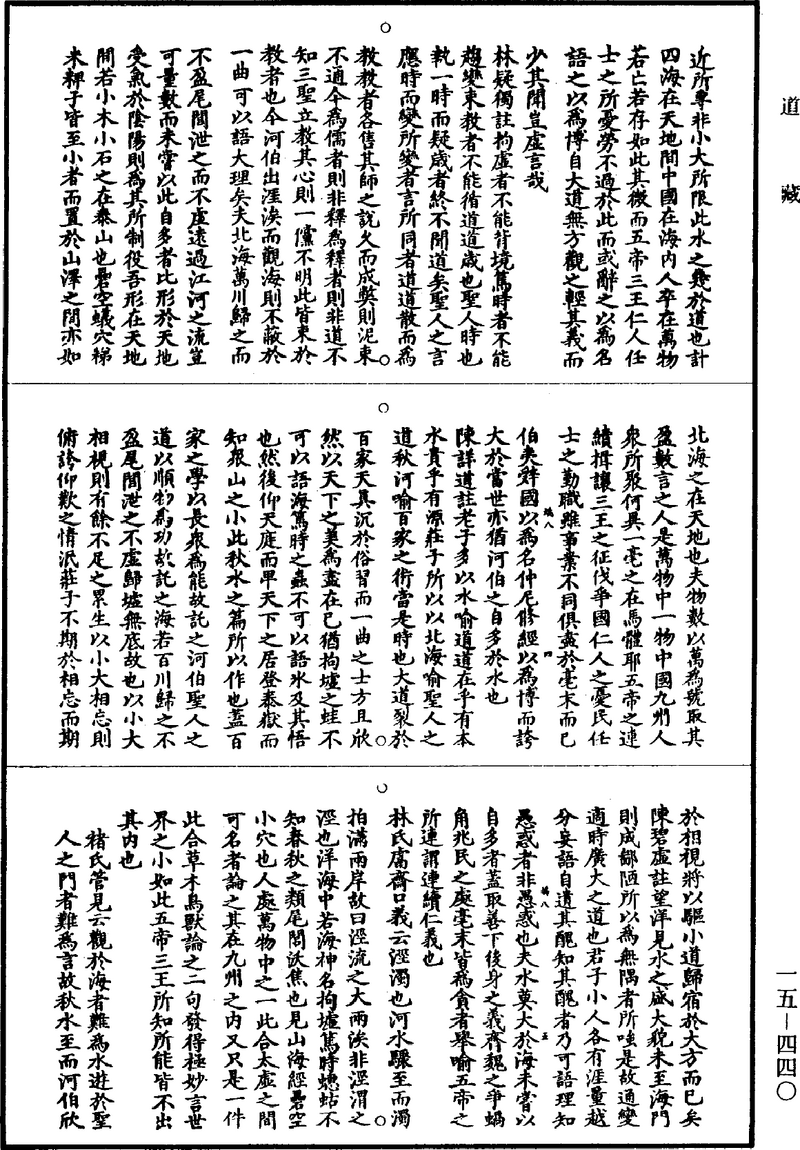 道藏
近所專非小大所限此水之幾於道也計
四海在天地間中國在海內人卒在萬物
若亡若存如此其微而五帝三王仁人任
士之所憂勞不過於此而或辭之以為名
語之以為博自大道無方觀之輕其義而
少其聞豈虛言哉
林疑獨註拘虛者不能背境篤時者不能
趨變束教者不能循道道歲也聖人時也
執一時而疑歲者終不聞道矣聖人之言
應時而變所變者言所同者道道散而為
教教者各售其師之說久而成弊則泥束
不通今為儒者則非釋為釋者則非道不
知三聖立教其心則一儻不明此皆束於
教者也今河伯出涯涘而觀海則不蔽於
一曲可以語大理矣夫北海萬川歸之而
不盈尾閭泄之而不虛遠過江河之流豈
可量數而未嘗以此自多者比形於天地
受氣於陰陽則為其所制役吾形在天地
間若小木小石之在泰山也礨空蟻穴稊
米稗子皆至小者而置於山澤之間亦如
北海之在天地也夫物數以萬為號取其
盈數言之人是萬物中一物中國九州人
眾所聚何異一毫之在馬體耶五帝之連
續揖讓三王之征伐爭國仁人之憂民任
士之勤職雖事業不同俱盡於毫末而已
伯夷辭國以為名仲尼修經以為博而誇
大於當世亦猶河伯之自多於水也
陳詳道註老子多以水喻道道在乎有本
水貴乎有源莊子所以以北海喻聖人之
道秋河喻百家之術當是時也大道裂於
百家天真沉於俗習而一曲之士方且欣
然以天下之美為盡在己猶拘墟之蛙不
可以語海篤時之蟲不可以語冰及其悟
也然後仰天庭而卑天下之居登泰嶽而
知眾山之小此秋水之篇所以作也蓋百
家之學以長眾為能故託之河伯聖人之
道以順物為功故託之海若百川歸之不
盈尾閭泄之不虛歸墟無底故也以小大
相視則有餘不足之累生以小大相忘則
俯誇仰歎之情泯莊子不期於相忘而期
於相視將以驅小道歸宿於大方而已矣
陳碧虛註望洋見水之盛大貌未至海門
則成鄙陋所以為無隅者所嗤是故通變
適時廣大之道也君子小人各有涯量越
分妄語自遺其醜知其醜者乃可語理知
愚惑者非愚惑也夫水莫大於海未嘗以
自多者蓋取善下後身之義齊魏之爭蝸
角兆民之處毫末皆為貪者舉喻五帝之
所連謂連續仁義也
林氏鬳齋口義云涇濁也河水驟至而濁
拍滿兩岸故曰涇流之大兩涘非涇渭之
涇也洋海中若海神名拘墟篤時蟪蛄不
知春秋之類尾閭沃焦也見山海經礨空
小穴也人處萬物中之一此合太虛之間
可名者論之其在九州之內又只是一件
此合草木鳥獸論之二句發得極妙言世
界之小如此五帝三王所知所能皆不出
其內也
褚氏管見云觀於海者難為水遊於聖
人之門者難為言故秋水至而河伯欣
一五-四四〇